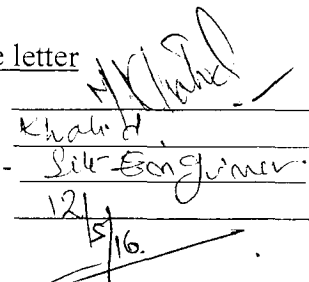 e letter
Khalid
- Site Engineer.
12/5/16.